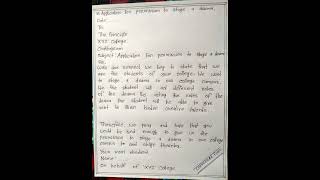 Application for permission to stage a drama.
Date:
To
The Principle
XYZ College
Chattogram
Subject: Application for permission to stage a drama
Sir,
With due respect, we beg to state that we
are the students of your college. We want
to stage a drama in our college campus.
the student will act different roles
of the drama. By acting the roles of the
drama the student will be able to give
vent to their hidden creative talents.
Therefore, we pray and hope that you
would be kind enough to give us the
permission to stage a drama in our college
campus to and oblige thereby.
Your most obedient
Name:
On behalf of XYZ College